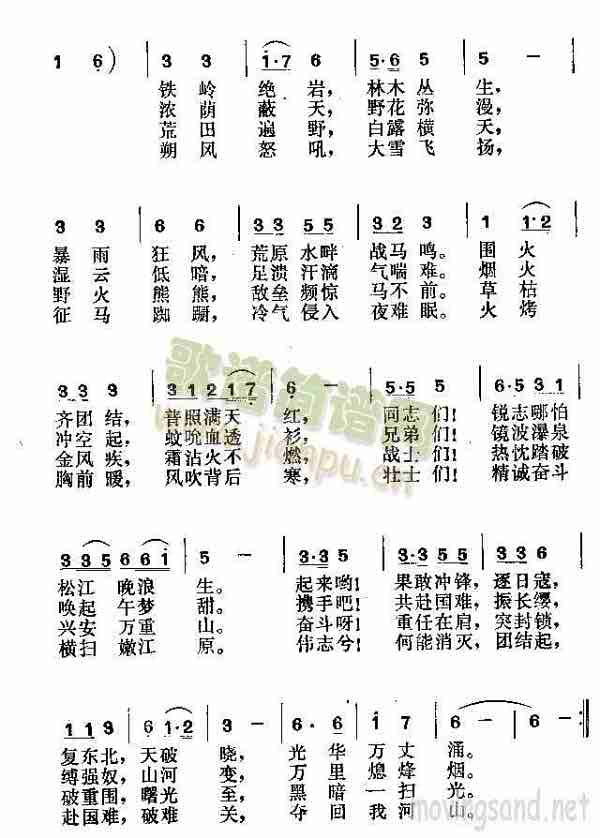 1 6） | 3 3 | 1·7 6 | 5·6 5 | 5 － |
铁岭绝岩，林木丛生，
浓荫蔽天，野花弥漫，
荒田遍野，白露横天，
朔风怒吼，大雪飞扬，
3 3 | 6 6 | 3 3 5 5 | 3 2 3 | 1 1·2 |
暴雨狂风，荒原水畔战马鸣。围火
湿云低暗，足溃汗滴气喘难。烟火
野火熊熊，敌垒频惊马不前。草枯
征马踟蹰，冷气侵入夜难眠。火烤
3 3 3 | 3 1 2 1 7 | 6 － | 5·5 5 | 6·5 3 1 |
齐团结，普照满天红，同志们！锐志哪怕
冲空起，蚊吮血透衫，兄弟们！镜波瀑泉
金风疾，霜沾火不燃，战士们！热忱踏破
胸前暖，风吹背后寒，壮士们！精诚奋斗
3 3 5 6 6 1 | 5 － | 3·3 5 | 3·3 5 5 | 3 3 6 |
松江晚浪生。起来哟！果敢冲锋，逐日寇，
唤起午梦甜。携手吧！共赴国难，振长缨，
兴安万重山。奋斗呀！重任在肩，突封锁，
横扫嫩江原。伟志兮！何能消灭，团结起，
1 1 3 | 6 1·2 | 3 － | 6· 6 | 1 7 | 6 － | 6 － :||
复东北，天破晓，光华万丈涌。
缚强奴，山河变，万里熄烽烟。
破重围，曙光至，黑暗一扫光。
赴国难，破难关，夺回我河山。
歌谱简谱网
www.jianpu.cn
movingsand.net